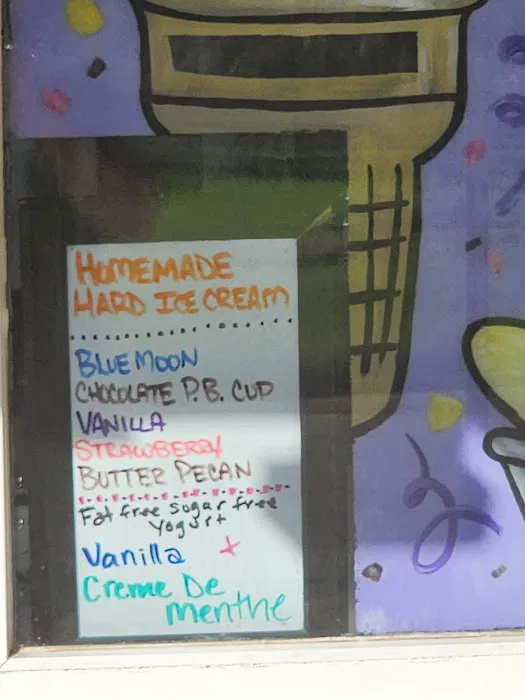 HOMEMADE
HARD ICE CREAM
BLUE MOON
CHOCOLATE P.B. CUP
VANILLA
STRAWBERRY
BUTTER PECAN
Fat free sugar free
Yogurt
Vanilla
Creme De
menthe